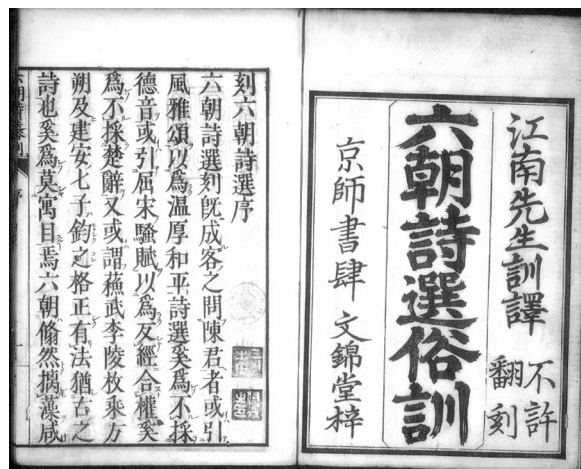 江南先生訓譯
不許
翻刻
六朝詩選俗訓
京師書肆 文錦堂梓
刻六朝詩選序
六朝詩選刻既成客之問陳君者或引
風雅頌以爲温厚和平詩選奚爲不採
德音或引屈宋騷賦以爲反經合權奚
爲不採楚辭又或謂蘓武李陵枚乘方
朔及建安七子鈞之格正有法猶古之
詩也奚爲莫寓目焉六朝翛然摛藻咸
序